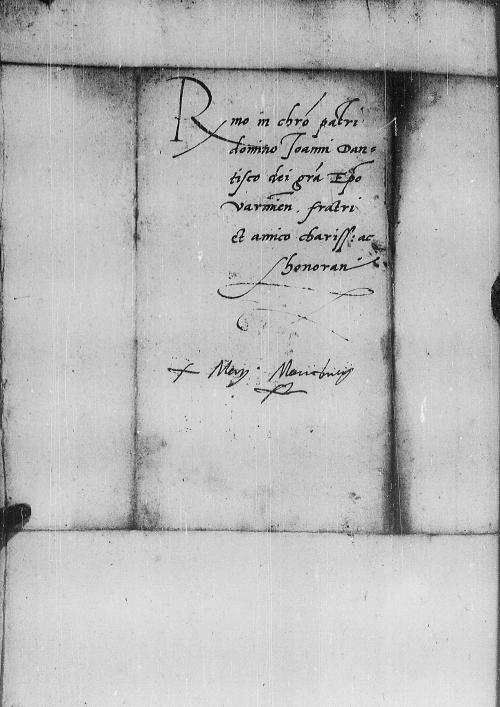 Rmo in chro patri
domino Joanni Dan=
tisco dei gra Epo
varmien. fratri
et amico chariss: ac
honoran